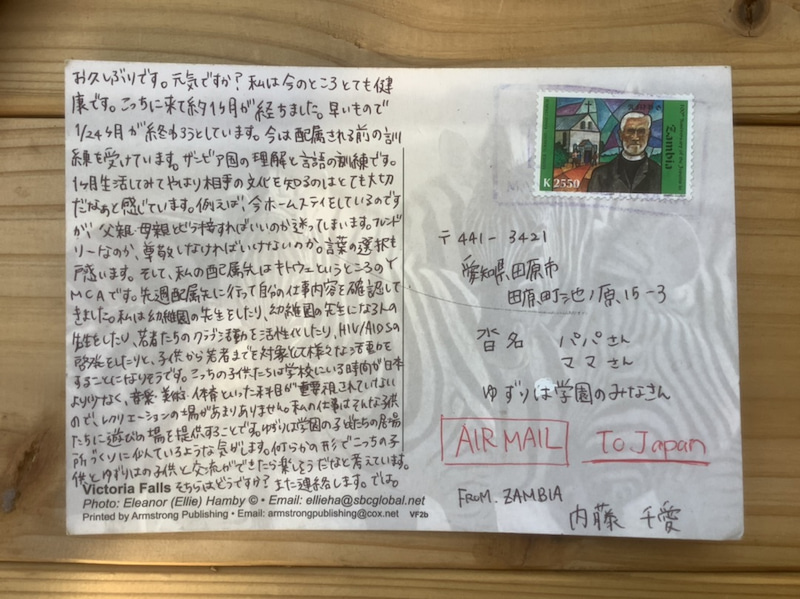 お久しぶりです。元気ですか?私は今のところとても健
康です。こっちに来て約1ヶ月が経ちました。早いもので
1/24ヶ月が終わろうとしています。今は配属される前の訓
練を受けています。ザンビア国の理解と言語の訓練です。
1ヶ月生活してみてやはり相手の文化を知るのはとても大切
だなぁと感じています。例えば、今ホームステイをしているのです
が、父親・母親とどう接すればいいのか迷ってしまいます。フレンド
リーなのか、尊敬しなければいけないのか。言葉の選択も
戸惑います。そして、私の配属先はキトウェというところのY
MCAです。先週配属先に行って自分の仕事内容を確認して
きました。私は幼稚園の先生をしたり、幼稚園の先生になる人の
先生をしたり、若者たちのクラブ活動を活性化したり、HIV/AIDSの
啓発をしたりと、子供から若者までを対象として様々な活動を
することになりそうです。こっちの子供たちは学校にいる時間が日本
より少なく、音楽・美術・体育といった科目が重要視されていない
ので、レクリエーションの場があまりありません。私の仕事はそんな子供
たちに遊びの場を提供することです。ゆずりは学園の子供たちの居場
所づくりに似ているような気がします。何らかの形でこっちの子
供とゆずりはの子供と交流ができたら楽しそうだなと考えています。
そちらはどうですか?また連絡します。では。
Victoria Falls
Photo: Eleanor (Ellie) Hamby © • Email: ellieha@sbcglobal.net
Printed by Armstrong Publishing • Email: armstrongpublishing@cox.net VF2b
Zambia
K2550
〒441-3421
愛知県田原市
田原町池ノ原15-3
沓名 パパさん
ママさん
ゆずりは学園のみなさん
AIR MAIL To Japan
FROM. ZAMBIA
内藤 千愛